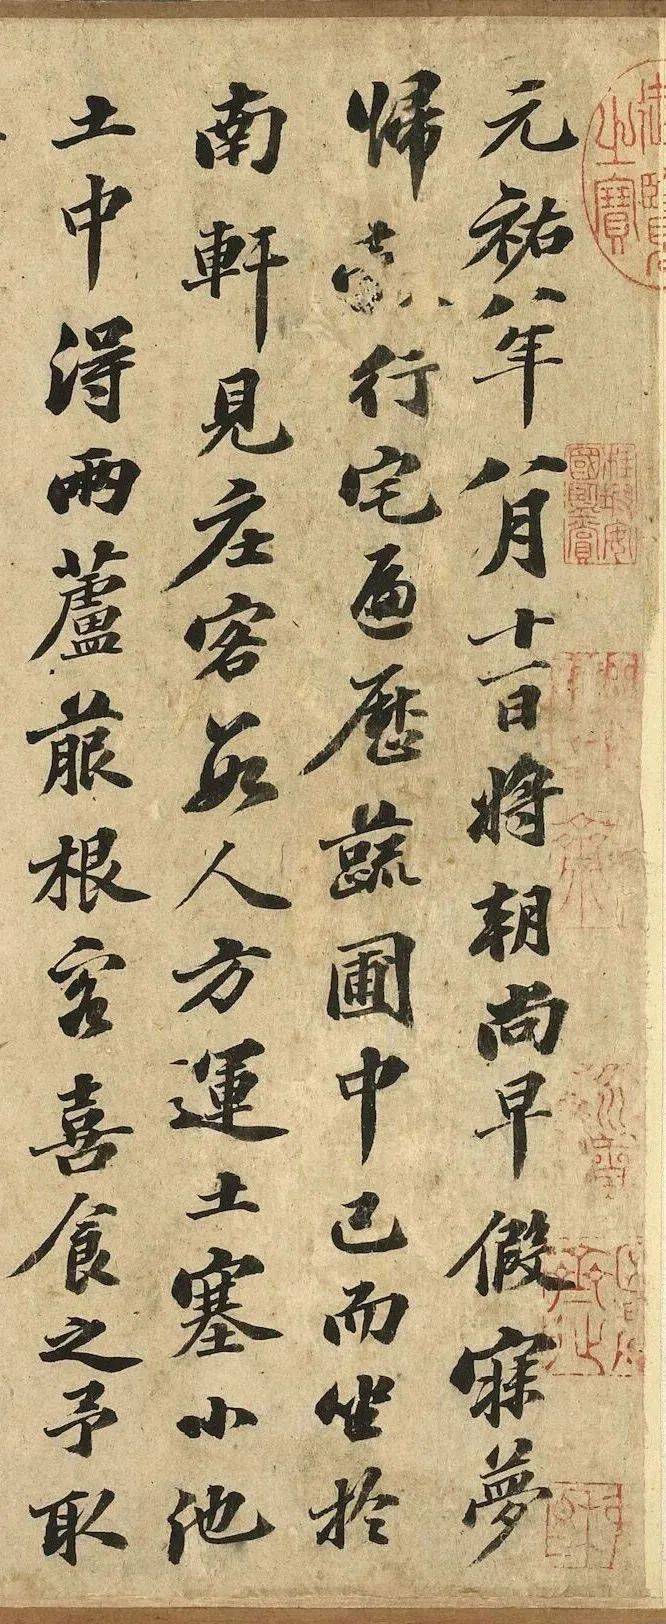 元祐八年八月十一日將朝尚早假寐夢
歸行宅遍歷蔬圃中已而坐於
南軒見庄客數人方運土塞小池
土中得兩蘆菔根客喜食之予取
御覽之寶